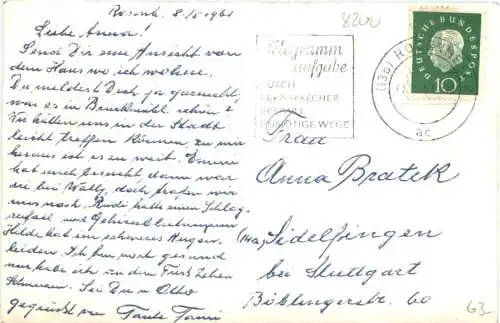 Rosenh. 8/5 1961
Liebe Anna!
Send Dir eine Ansicht von
dem Haus wo ich wohne.
Du meldest Dich ja garnicht,
war es in schön?
Wir hätten uns in der Stadt
leicht treffen können, zu mir
heraus ist es zu weit.
hat mich besucht, dann war
sie bei Wally, doch trafen wir
uns noch. Rudi hatte einen Schlag-
und
Hilde hat ein schweres Augen-
leiden. Ich bin noch gesund
nur habe ich an den Zehen
Schmerzen. Sei Du u Otto
gegrüsst von Tante Fanni
8200
Telegramm
aufgabe
DURCH
FERNSPRECHER
UNNÖTIGE WEGE
(13b) RO
ac
DEUTSCHE BUNDESPOST
10
Frau
Anna Bratek
Sidelfingen
bei Stuttgart
Böblingerstr. 60
63